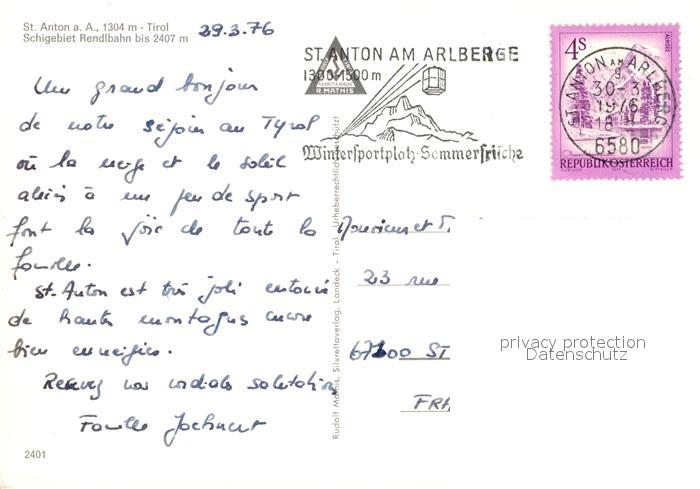 St. Anton a. A., 1304 m - Tirol
Schigebiet Rendlbahn bis 2407 m
29.3.76
Un grand bonjour
de notre séjour au Tyrol
où la neige et le soleil
alliés à un peu de sport
font la joie de toute la
famille.
St. Anton est très joli entouré
de hautes montagnes encore
bien enneigées.
Recevez nos cordiales salutations
Famille
2401
R. MATHIS
Rudolf Mathis, Silvrettaverlag, Landeck - Tirol. Urheberrechtlich geschützt
ST. ANTON AM ARLBERG
1300-1500 m
Wintersportplatz-Sommerfrische
4S
ALMSEE
REPUBLIK ÖSTERREICH
ST. ANTON AM ARLBERG
30-3.
1976
18
6580
Monsieur et
23 rue
67100 ST
FR
privacy protection
Datenschutz